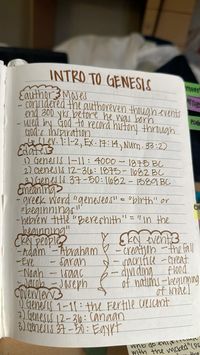 INTRO TO GENESIS
author Moses
- considered the author even though events
end 300 yrs before he was born
- used by God to record history through
God's inspiration
(Lev. 1:1-2, Ex. 17:14, Num. 33:2)
dates
1) Genesis 1-11: 4000 - 1875 BC
2) Genesis 12-36: 1875 - 1682 BC
3) Genesis 37-50: 1682 - 1589 BC
meaning
- greek word "geneseos" = "birth" or
"beginnings"
- hebrew title "Bereshith" = "in the
beginning"
key people
- Adam - Abraham
- Eve - Sarah
- Noah - Isaac
- Sarah - Joseph
key events
- creation - the fall
- sacrifice - great
- dividing flood
of nations - beginning
of Israel
overview
1) Genesis 1-11: the Fertile Crescent
2) Genesis 12-36: Canaan
3) Genesis 37-50: Egypt